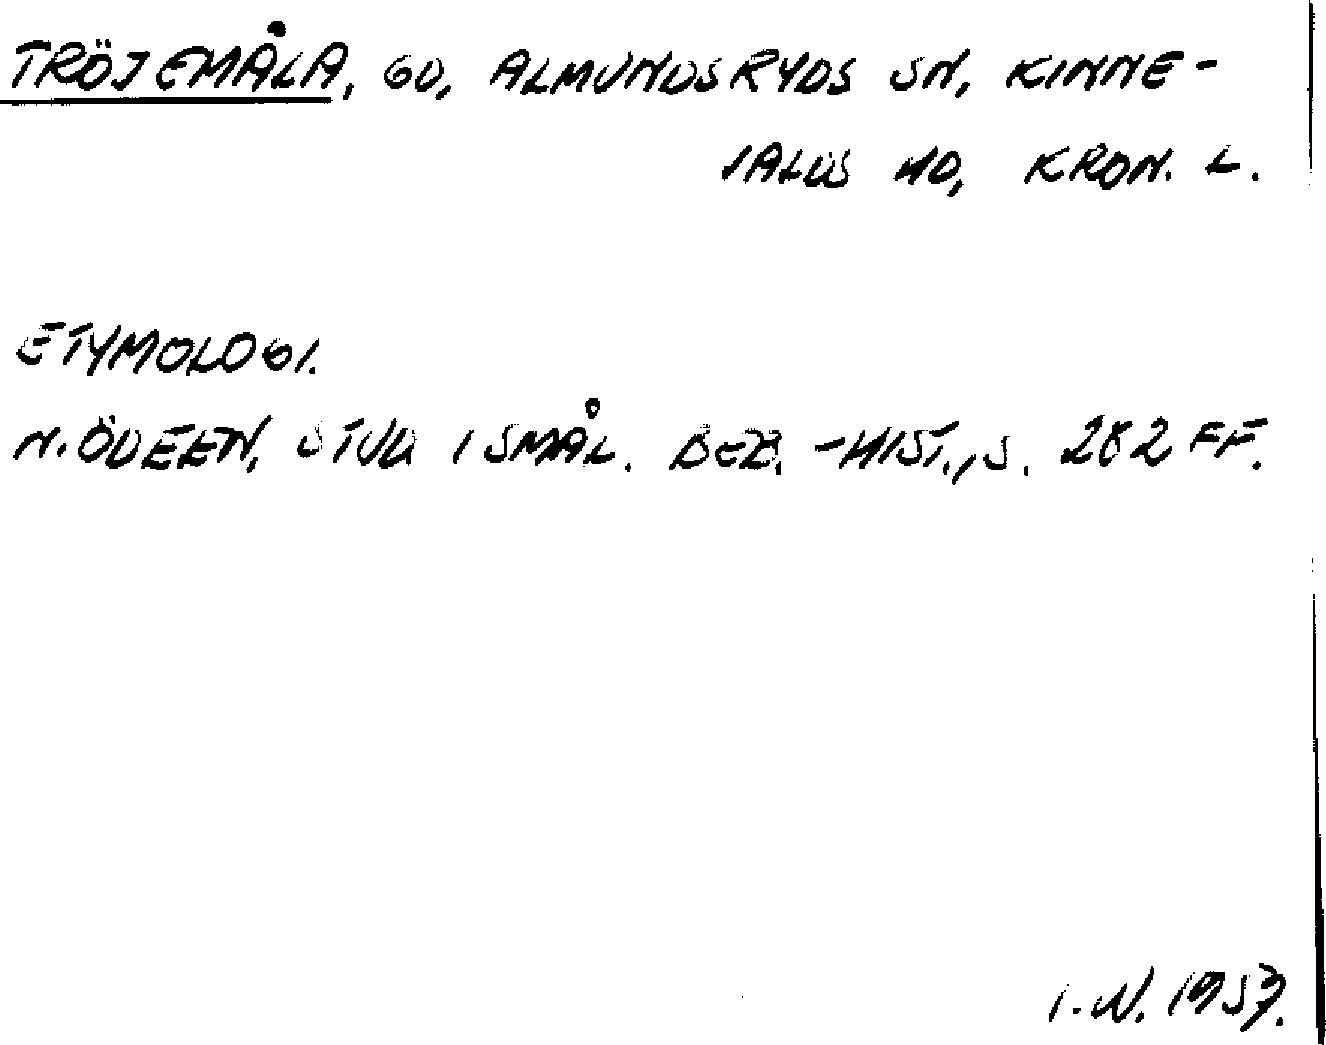 TRÖJEMÅLA, GD, ALMUNDSRYDS SN, KINNE-
VALDS HD, KRON. L.
ETYMOLOGI.
N. ÖDEEN, STUD I SMÅL. BEB. -HIST., S. 282 FF.
I.N. 1957.